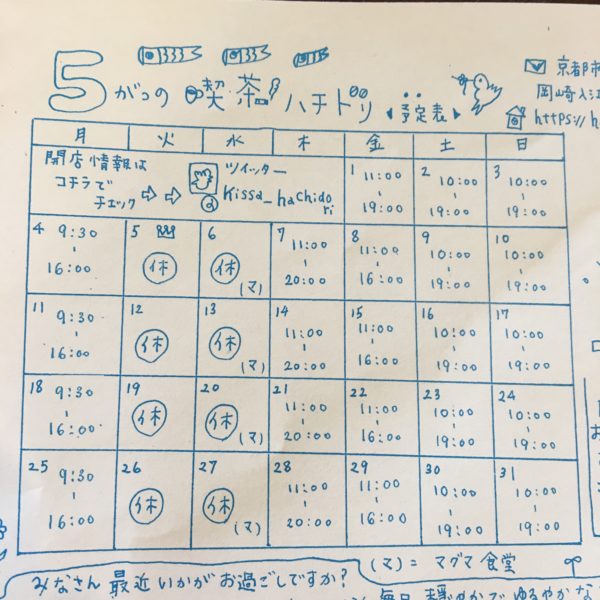 5がつの 喫茶 ハチドリ 予定表
京都市
岡崎入江
https://h
月 火 水 木 金 土 日
開店情報は
コチラで
チェック
ツイッター
@kissa_hachidori
1 11:00 - 19:00
2 10:00 - 19:00
3 10:00 - 19:00
4 9:30 - 16:00
5 休
6 休 (マ)
7 11:00 - 20:00
8 11:00 - 16:00
9 10:00 - 19:00
10 10:00 - 19:00
11 9:30 - 16:00
12 休
13 休 (マ)
14 11:00 - 20:00
15 11:00 - 16:00
16 10:00 - 19:00
17 10:00 - 19:00
18 9:30 - 16:00
19 休
20 休 (マ)
21 11:00 - 20:00
22 11:00 - 16:00
23 10:00 - 19:00
24 10:00 - 19:00
25 9:30 - 16:00
26 休
27 休 (マ)
28 11:00 - 20:00
29 11:00 - 16:00
30 10:00 - 19:00
31 10:00 - 19:00
(マ)= マグマ食堂
みなさん 最近いかがお過ごしですか?
毎日 穏やかでゆるやかな